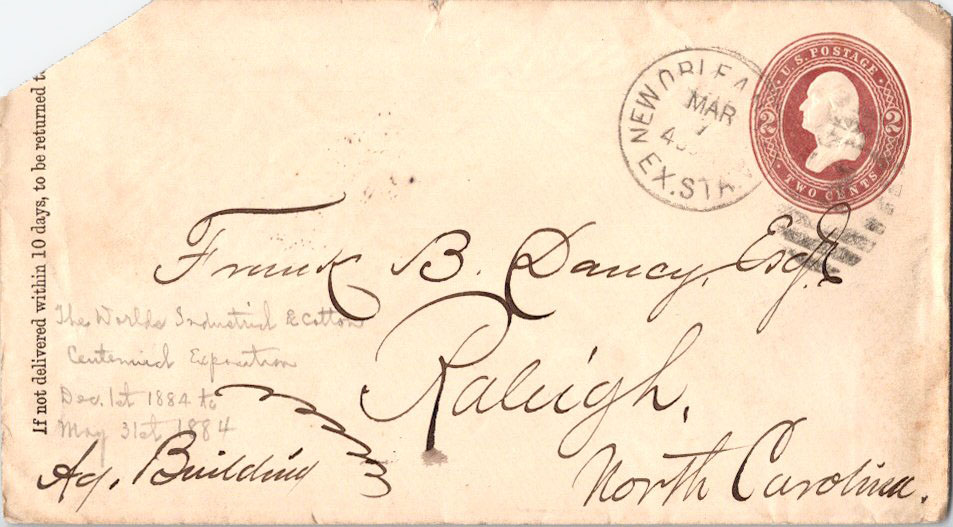 If not delivered within 10 days, to be returned t
NEW ORLEA
MAR
EX. STA
U.S. POSTAGE
2 2
TWO CENTS
Frank B. Dancy, Esqr
Raleigh,
North Carolina.
The Worlds Industrial & Cotton
Centennial Exposition
Dec. 1st 1884 to
May 31st 1884
Ag. Building